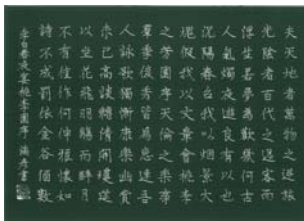 夫天地者萬物之逆旅
光陰者百代之過客而
浮生若夢為歡幾何古
人秉燭夜遊良有以也
況陽春召我以煙景大
塊假我以文章會桃李
之芳園序天倫之樂事
羣季俊秀皆為惠連吾
人詠歌獨慚康樂幽賞
未已高談轉清開瓊筵
以坐花飛羽觴而醉月
不有佳作何伸雅懷如
詩不成罰依金谷酒數
李白春夜宴桃李園序